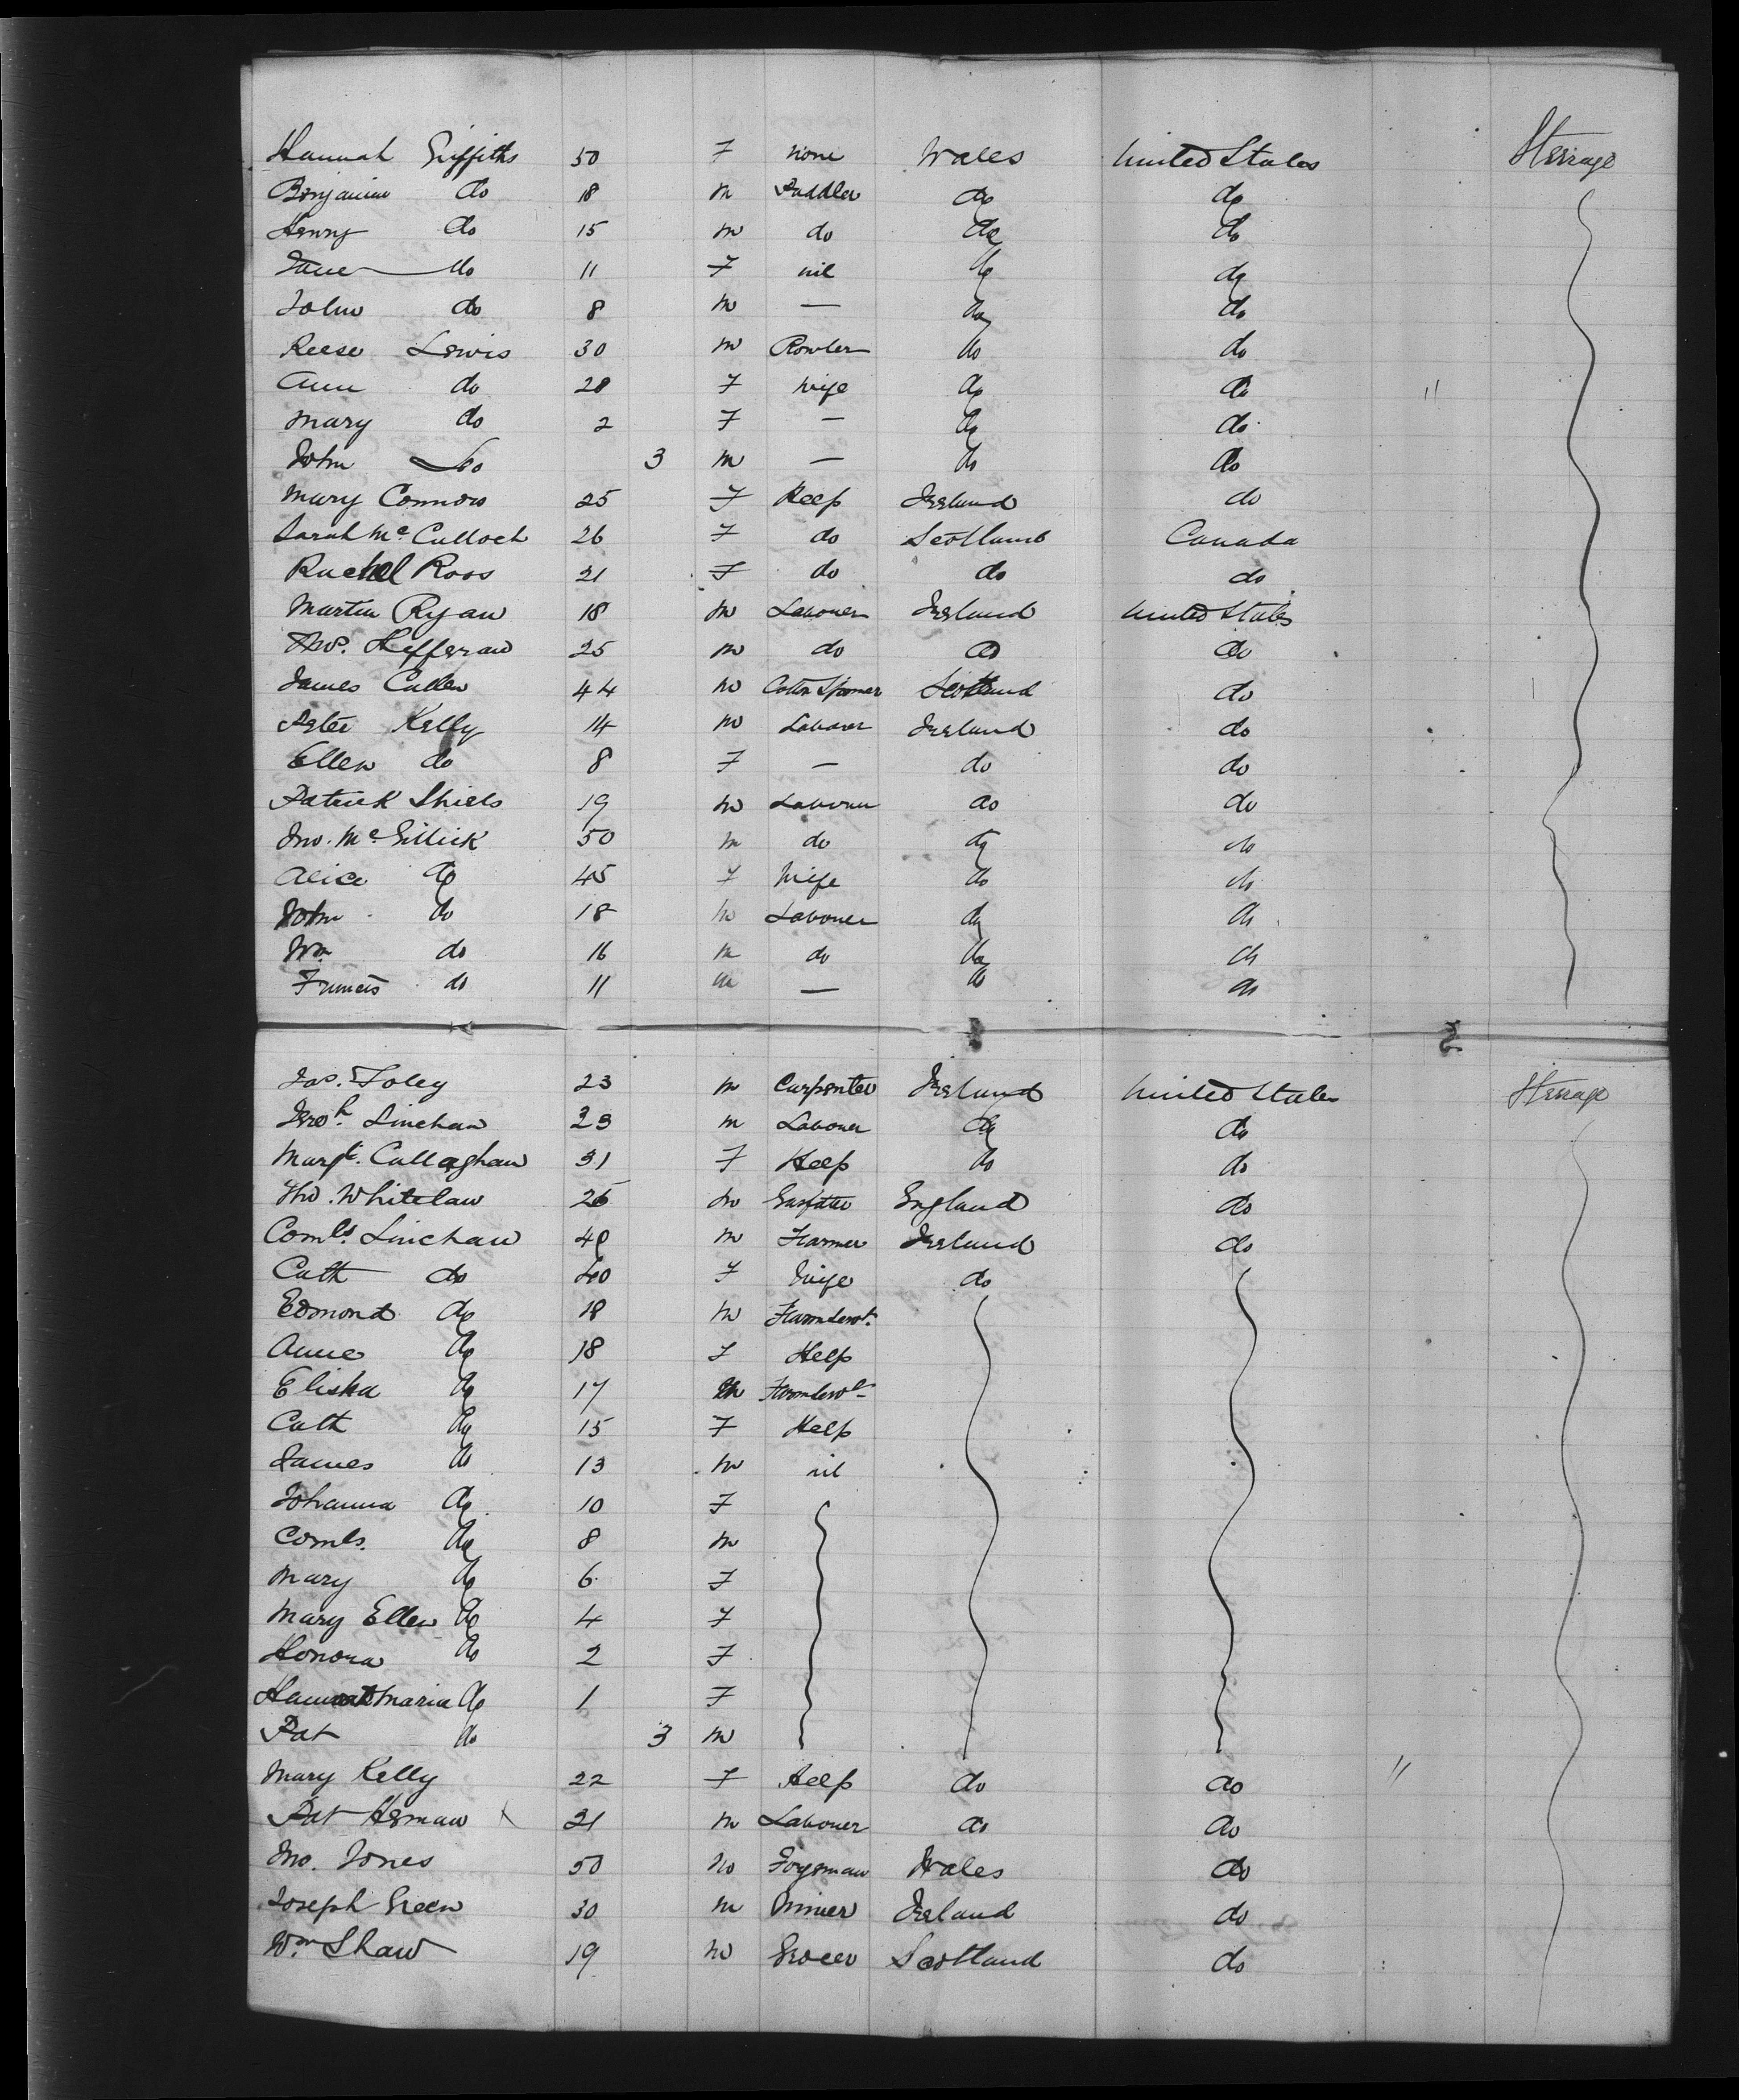 Hannah Griffiths 50 F none Wales United States Sterrage
Benjamin do 18 m Puddler do do
Henry do 15 m do do do
Jane do 11 F nil do do
John do 8 m — do do
Reese Lewis 30 m do do
Ann do 28 F Wife do do "
Mary do 2 F — do do
John do 3 m — do do
Mary Connors 25 F Help Ireland do
Sarah McCulloch 26 F do Scotland Canada
Rachel Ross 21 F do do do
Martin Ryan 18 m Labourer Ireland United States
Thos. Hefferan 25 m do do do
James Cullen 44 m Cotton Spinner Scotland do
Peter Kelly 14 m Labourer Ireland do
Ellen do 8 F — do do
Patrick Shiels 19 m Labourer do do
Jno. McGillick 50 m do do do
Alice do 45 F Wife do do
John do 18 m Labourer do do
Wm do 16 m do do do
Francis do 11 m — do do
Jas. Foley 23 m Carpenter Ireland United States Sterrage
Jerh. Linehan 23 m Labourer do do
Margt. Callaghan 31 F Help do do
Tho. Whitelaw 26 m Gasfitter England do
Cornls. Linehan 48 m Farmer Ireland do
Cath do 40 F Wife do
Edmond do 18 m Farmservt.
Anne do 18 F Help
Elisha do 17 m Farmservt.
Cath do 15 F Help
James do 13 m nil
Johanna do 10 F
Cornls. do 8 m
Mary do 6 F
Mary Ellen do 4 F
Honora do 2 F
Hannah Maria do 1 F
Pat do 3 m
Mary Kelly 22 F Help do do "
Pat Hernan x 21 m Labourer do do
Jno. Jones 50 m Forgeman Wales do
Joseph Green 30 m Miner Ireland do
Wm Shaw 19 m Grocer Scotland do